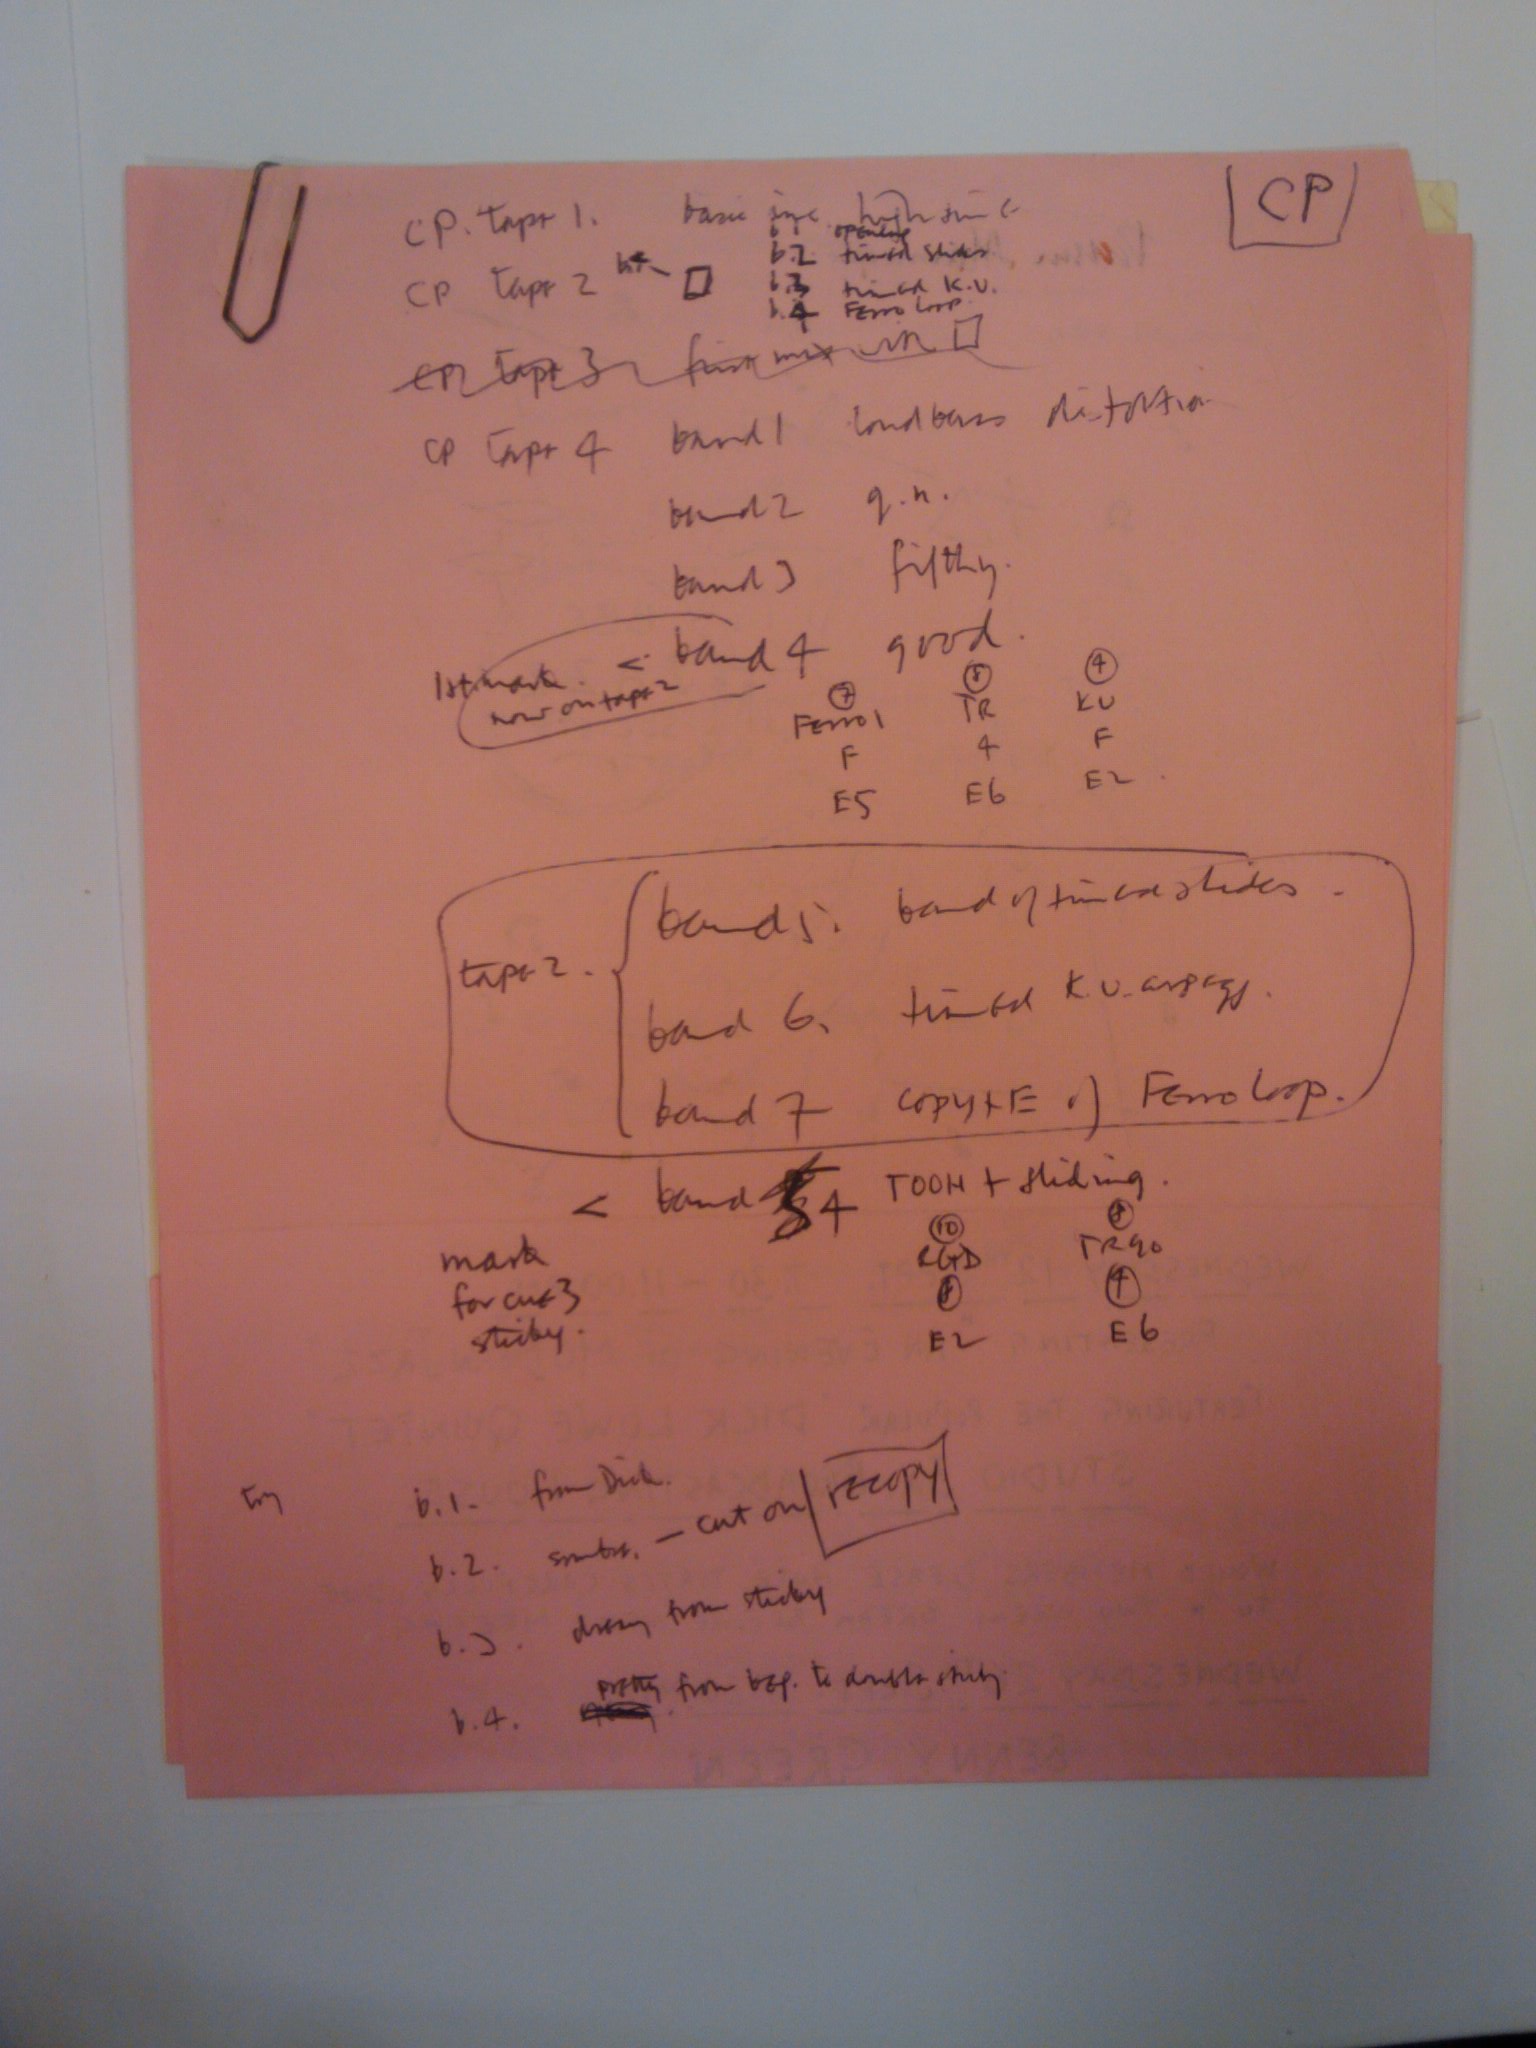 CP
CP. Tape 1. basic inc high sine
b.1 opening
CP Tape 2 b.2 timed slides
b.3 timed K.U.
b.4 Ferro loop.
CP Tape 3 first mix with
CP Tape 4 band 1 loud bass distortion
band 2 q.n.
band 3 filthy.
< band 4 good.
1st mark.
now on tape 2
7 8 4
Ferro 1 TR KU
F 4 F
E5 E6 E2
tape 2. band 5. band of timed slides.
band 6. timed K.U. arpegs.
band 7 copy + E of Ferro loop.
< band 4 TOOH + sliding.
mark
for cue 3
sticky.
10 8
RGD TR90
8 4
E2 E6
try b.1. from Dick.
b.2. – cut on recopy
b.3. dreamy from sticky
b.4. pretty from beg. to double sticky.
WEDNESDAY
FEATURING THE POPULAR DICK LOWE QUINTET
STUDIO
WEDNESDAY
BENNY GREEN